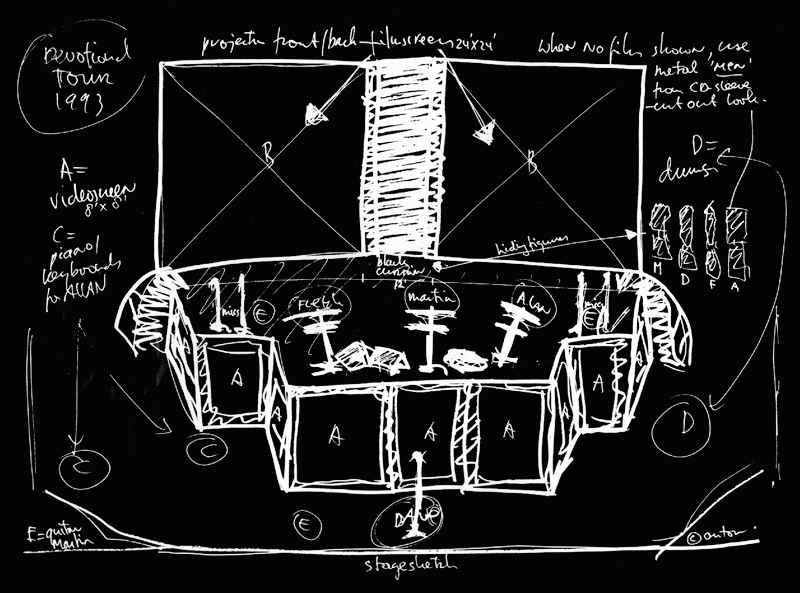 Devotional
Tour
1993
projector front/back - filmscreens 24'x24'
when no films shown, use
metal 'MEN'
from CD sleeve
cut out look.
A=
videoscreen
8'x8'
C=
piano/
keyboards
for ALAN
B
B
D=
drums
hiding figures
M D F A
black
curtain
12'
E
Fletch
martin
Alan
E
A
A
A
A
A
A
A
A
A
C
C
D
E
DAVE
E=guitar
Martin
© anton
stagesketch